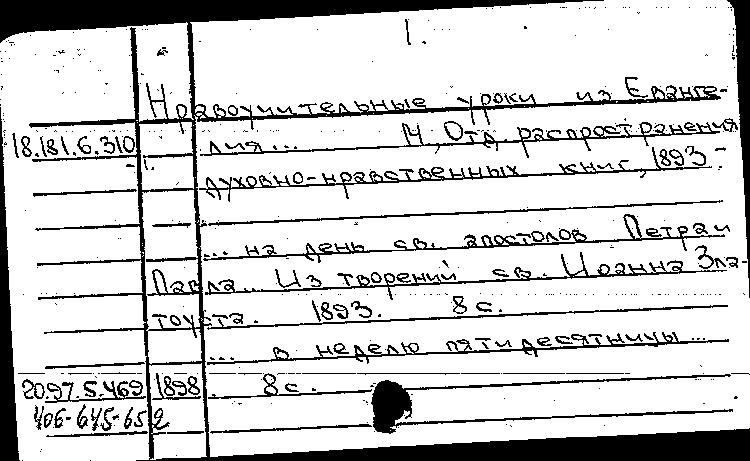 1.
Нравоучительные уроки из Еванге-
18.181.6.310 лия... М, Отд. распространения
-1. духовно-нравственных книг, 1893-
... на день св. апостолов Петра и
Павла... Из творений св. Иоанна Зла-
тоуста. 1893. 8 с.
... в неделю пятидесятницы...
20.97.5.469 1898. 8 с.
406-645-652